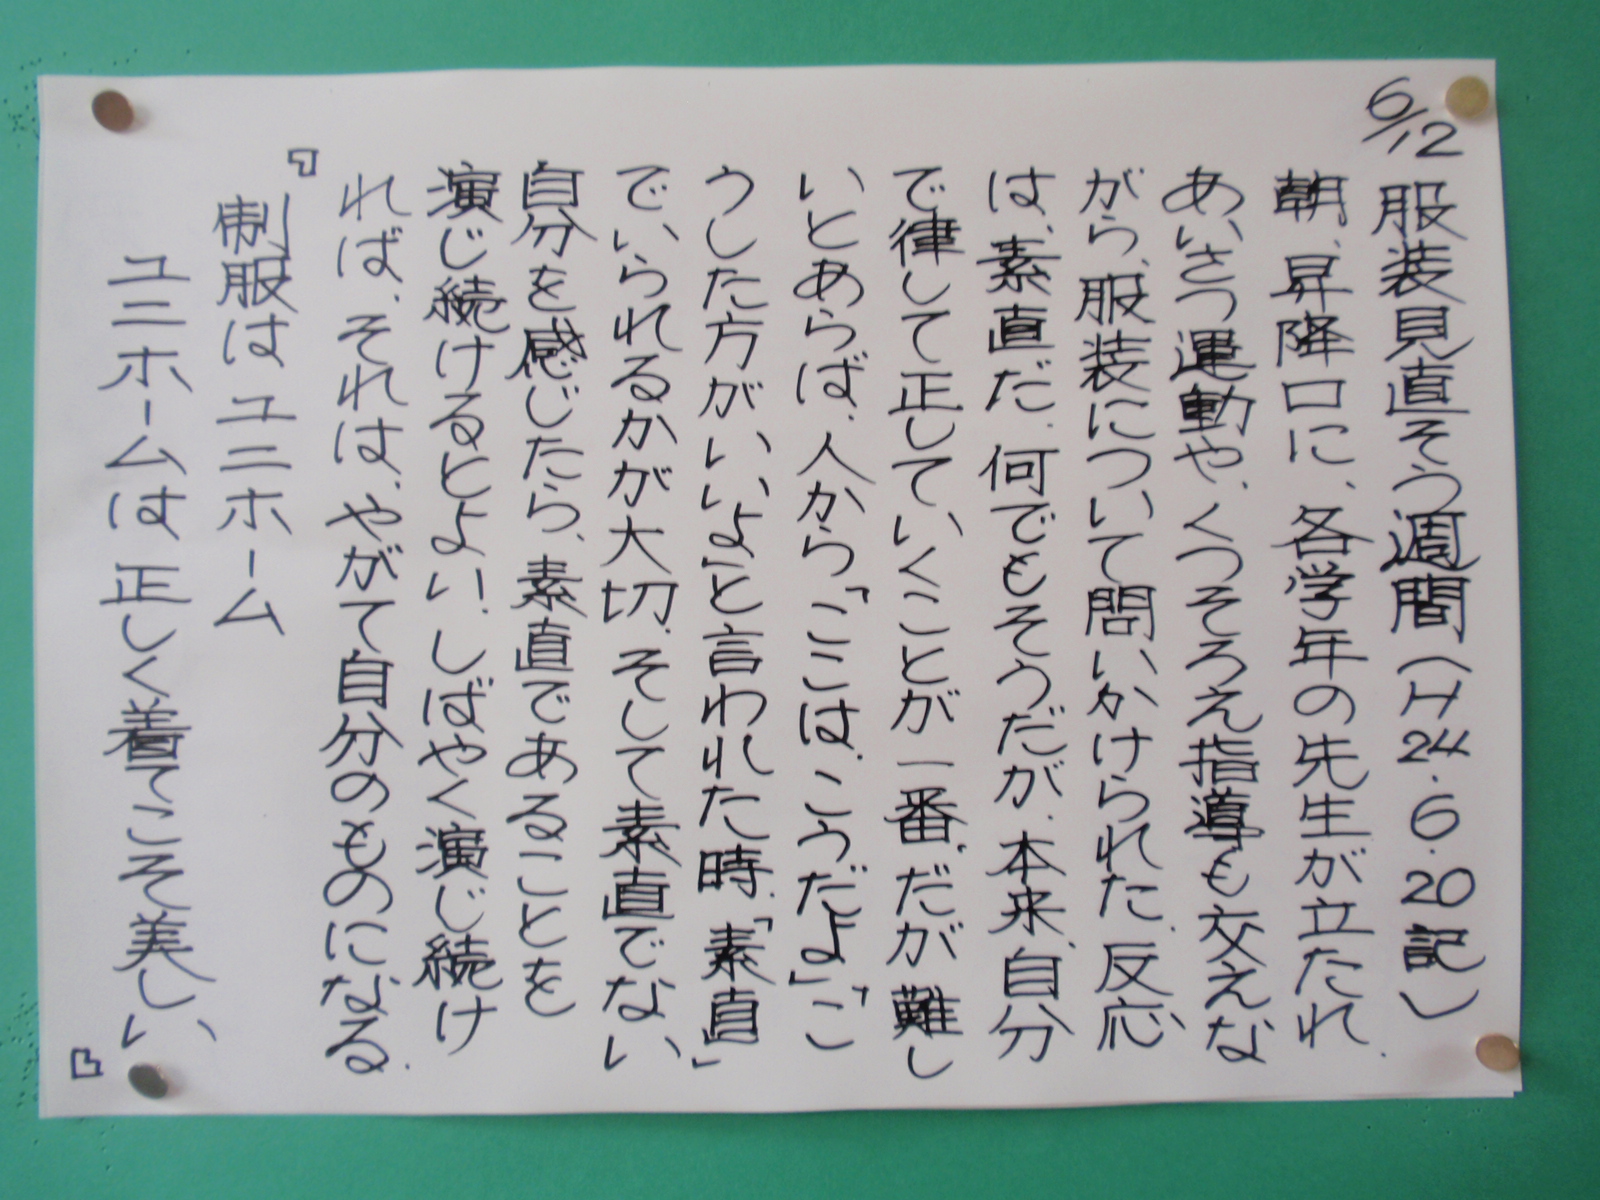 6/12
服装見直そう週間（H24.6.20記）
朝、昇降口に、各学年の先生が立たれ、
あいさつ運動や、くつそろえ指導も交えな
がら、服装について問いかけられた。反応
は、素直だ。何でもそうだが、本来、自分
で律して正していくことが一番。だが難し
いとあらば、人から「ここは、こうだよ」「こ
うした方がいいよ」と言われた時、「素直」
でいられるかが大切。そして素直でない
自分を感じたら、素直であることを
演じ続けるとよい。しばやく演じ続け
れば、それは、やがて自分のものになる。
『制服は ユニホーム
ユニホームは 正しく着てこそ美しい』